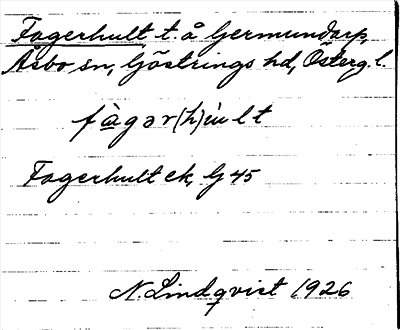 Fagerhult, t. å Germundarp,
Åsbo sn, Göstrings hd, Österg. l.
fàgər(h)ùlt
Fagerhult ek, G 45
N. Lindqvist 1926